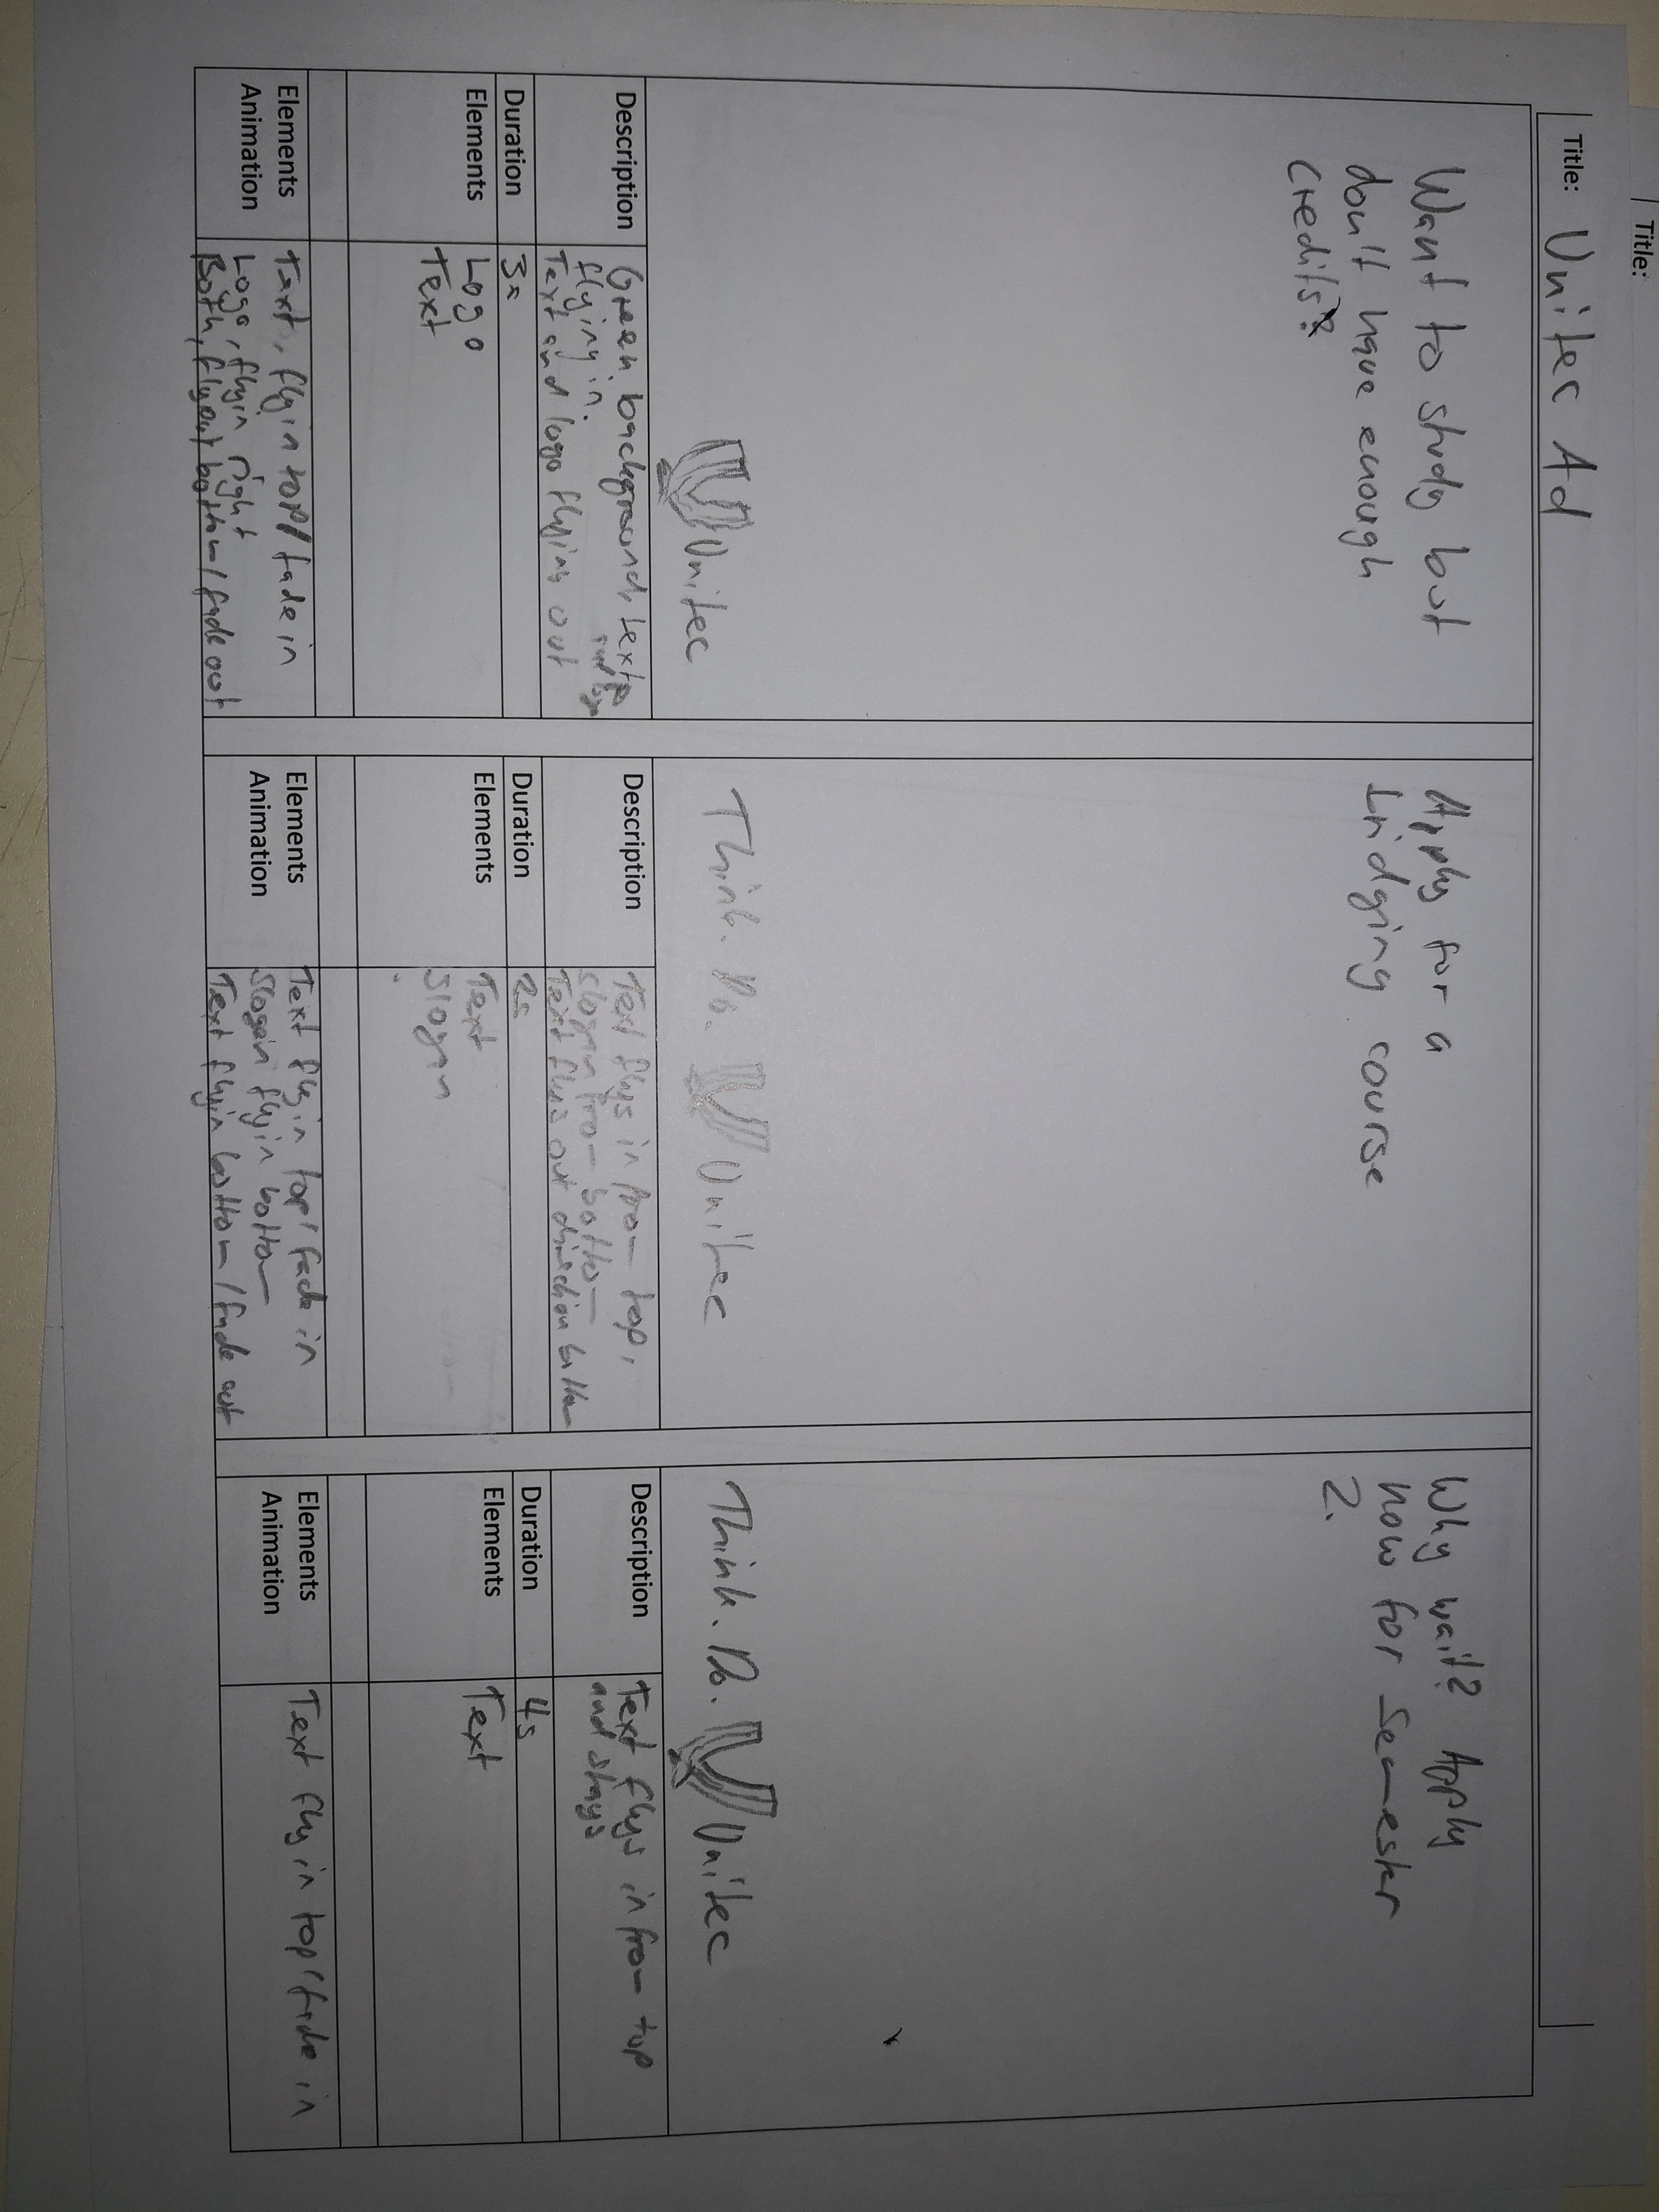 Title:
Title: Unitec Ad
Want to study but
don't have enough
credits?
Unitec
Description
Green background, text
and logo
flying in.
Text and logo flying out
Duration
3s
Elements
Logo
Text
Elements
Animation
Text, fly in top/fade in
Logo, fly in right
Both, fly out bottom/fade out
Apply for a
bridging course
Think. Do. Unitec
Description
Text flys in from top,
slogan from bottom
Text flys out direction bottom
Duration
2s
Elements
Text
Slogan
Elements
Animation
Text fly in top/fade in
Slogan fly in bottom
Text fly in bottom/fade out
Why wait? Apply
now for Semester
2.
Think. Do. Unitec
Description
Text flys in from top
and stays
Duration
4s
Elements
Text
Elements
Animation
Text fly in top/fade in